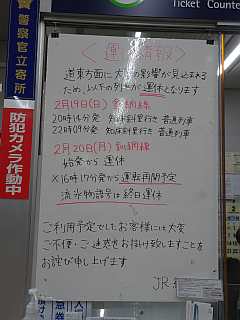 Ticket Counter
警察官立寄所
防犯カメラ作動中
道東方面に大
の影響が見込まれる
ため、以下の列車が運休となります
2月19日(日) 釧網線
20時14分発 知床斜里行き 普通列車
22時09分発 知床斜里行き 普通列車
2月20日(月) 釧網線
始発から 運休
※16時17分発から運転再開予定
流氷物語号は終日運休
ご利用予定でしたお客様には大変
ご不便・ご迷惑をお掛け致しますことを
お詫び申し上げます
JR